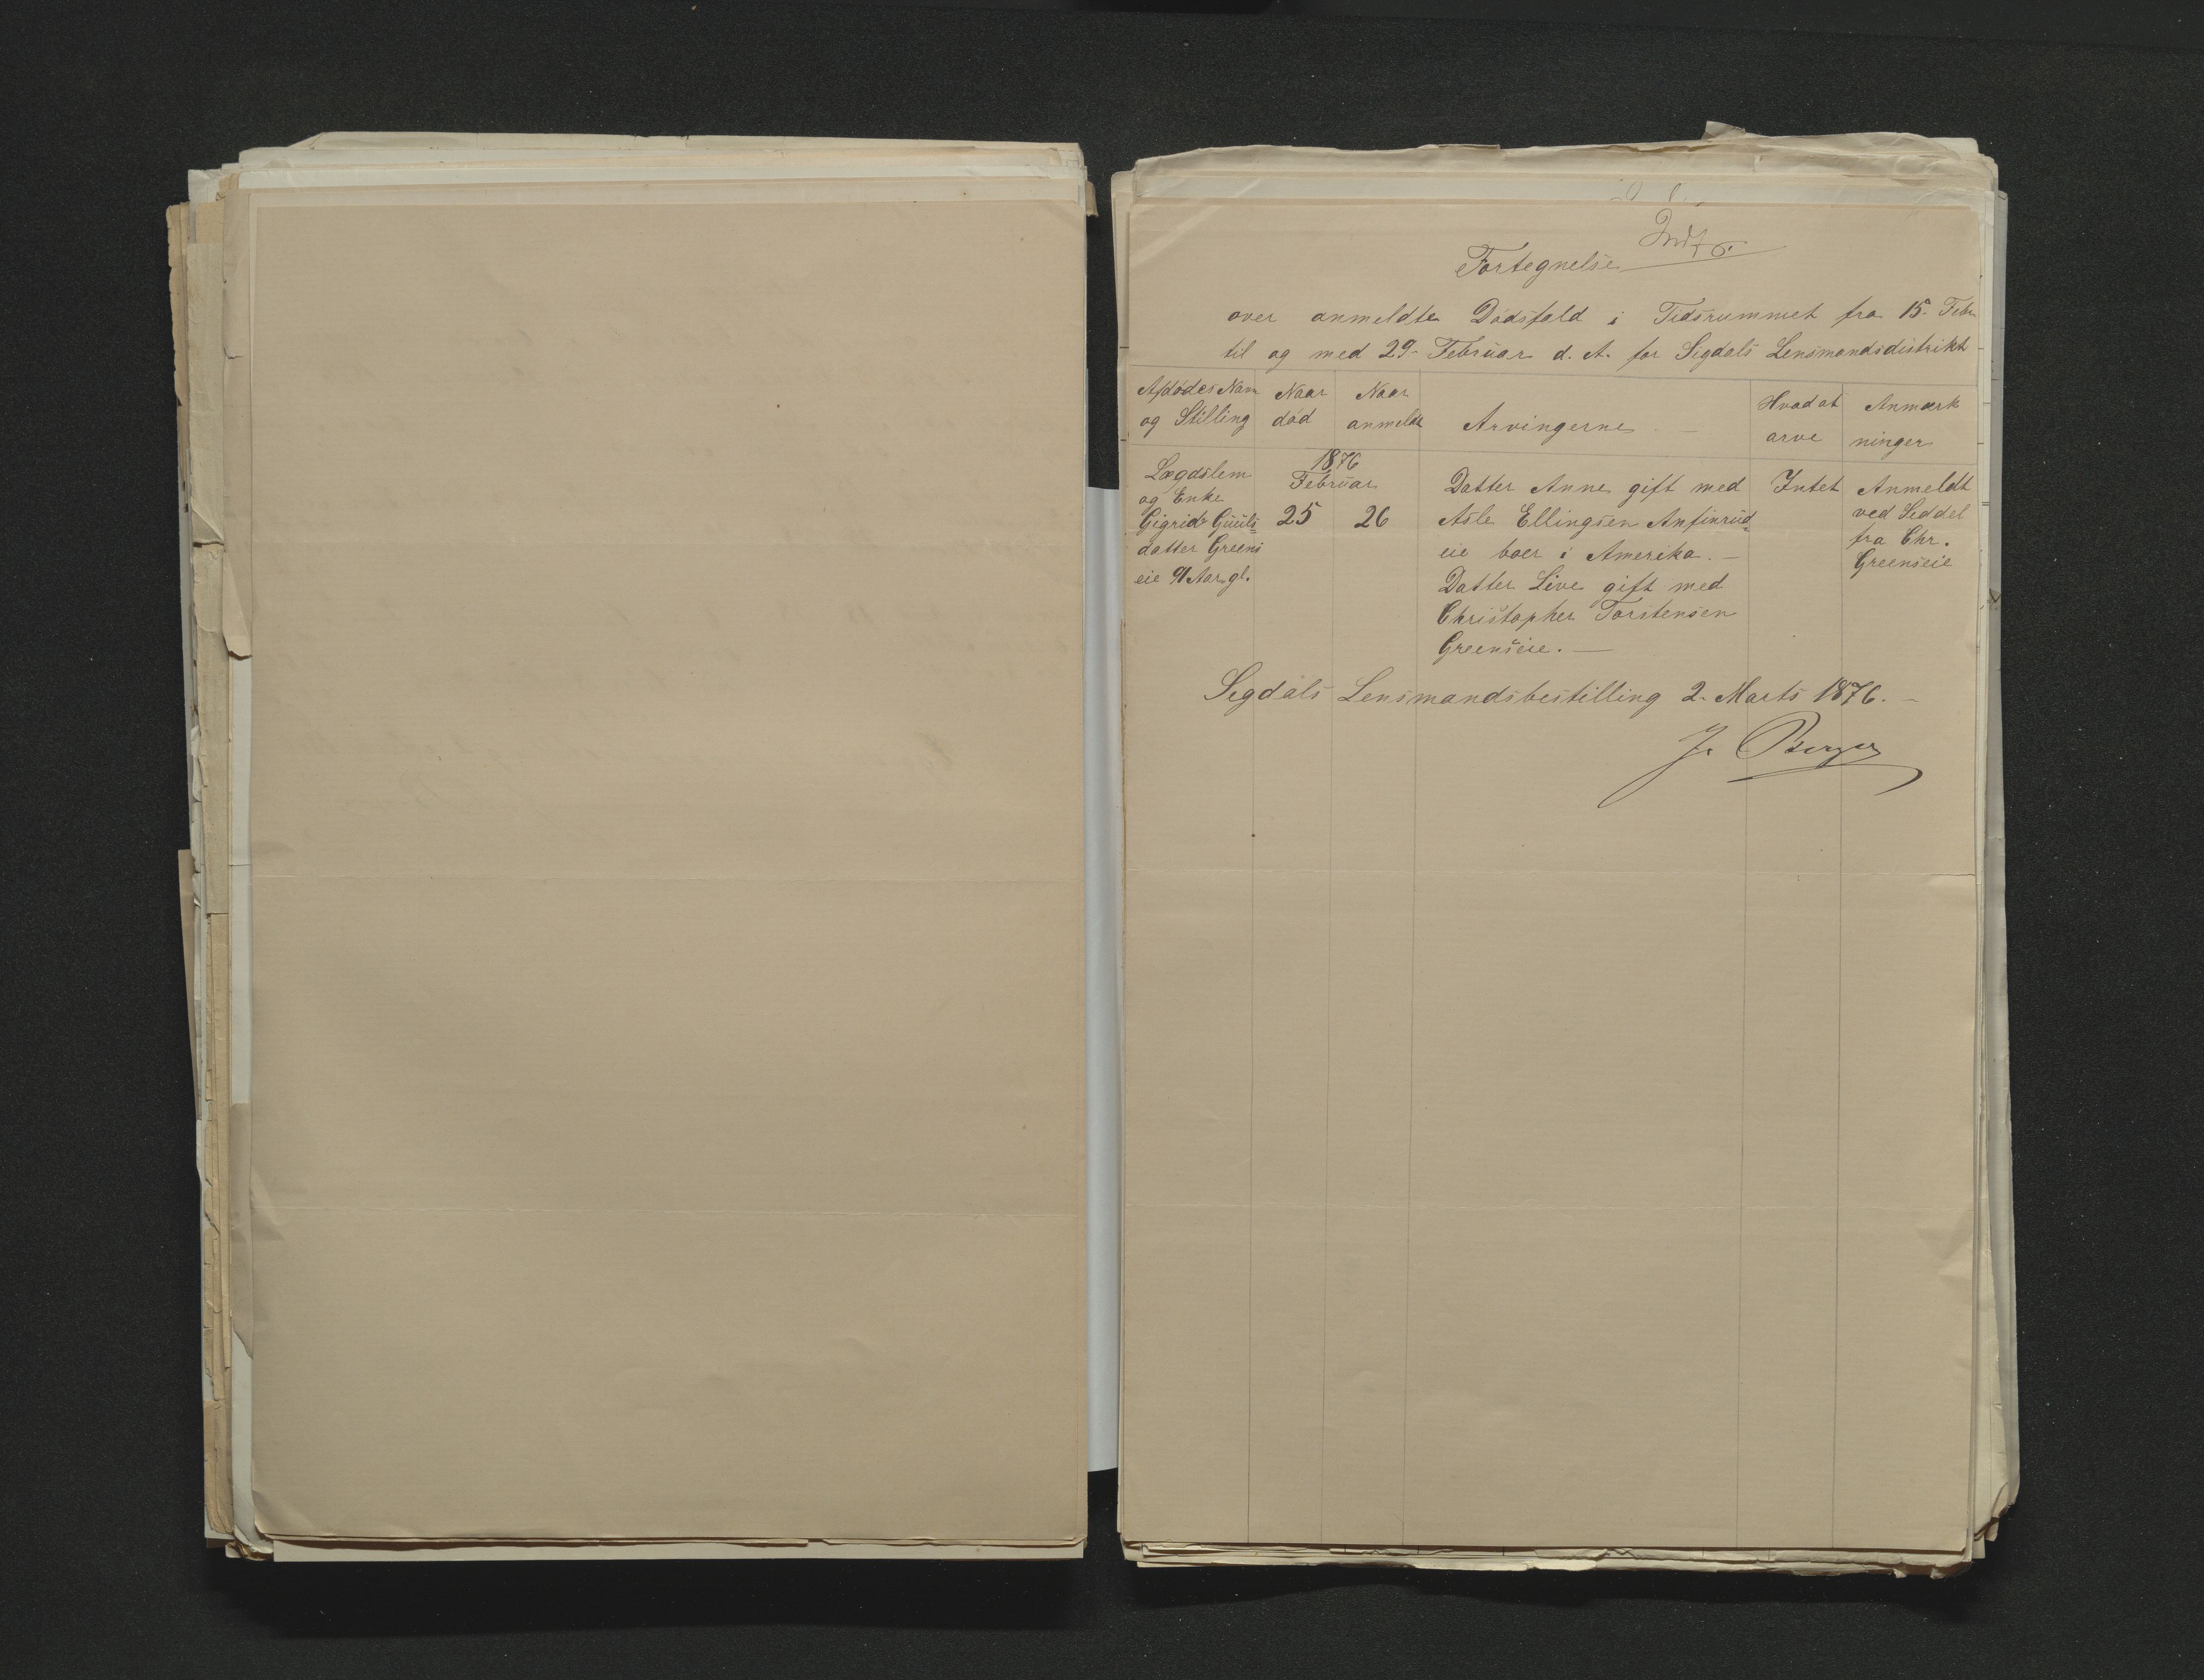 Fortegnelse
over anmeldte Dødsfald i Tidsrummet fra 15. Febr
til og med 29. Februar d. A. for Sigdals Lensmandsdistrikt
Afdødes Navn
og Stilling
Naar
død
Naar
anmeldt
Arvingerne
Hvad at
arve
Anmærk
ninger
Lægdslem
og Enke
Gigrid Guuls-
datter Greens
eie 91 Aar gl.
1876
Februar
25
26
Datter Anne gift med
Asle Ellingsen Anfinrud-
eie boer i Amerika. —
Datter Live gift med
Christopher Torstensen
Greenseie. —
Intet
Anmeldt
ved Seddel
fra Chr.
Greenseie
Sigdals Lensmandsbestilling 2. Marts 1876. —
J. Berger